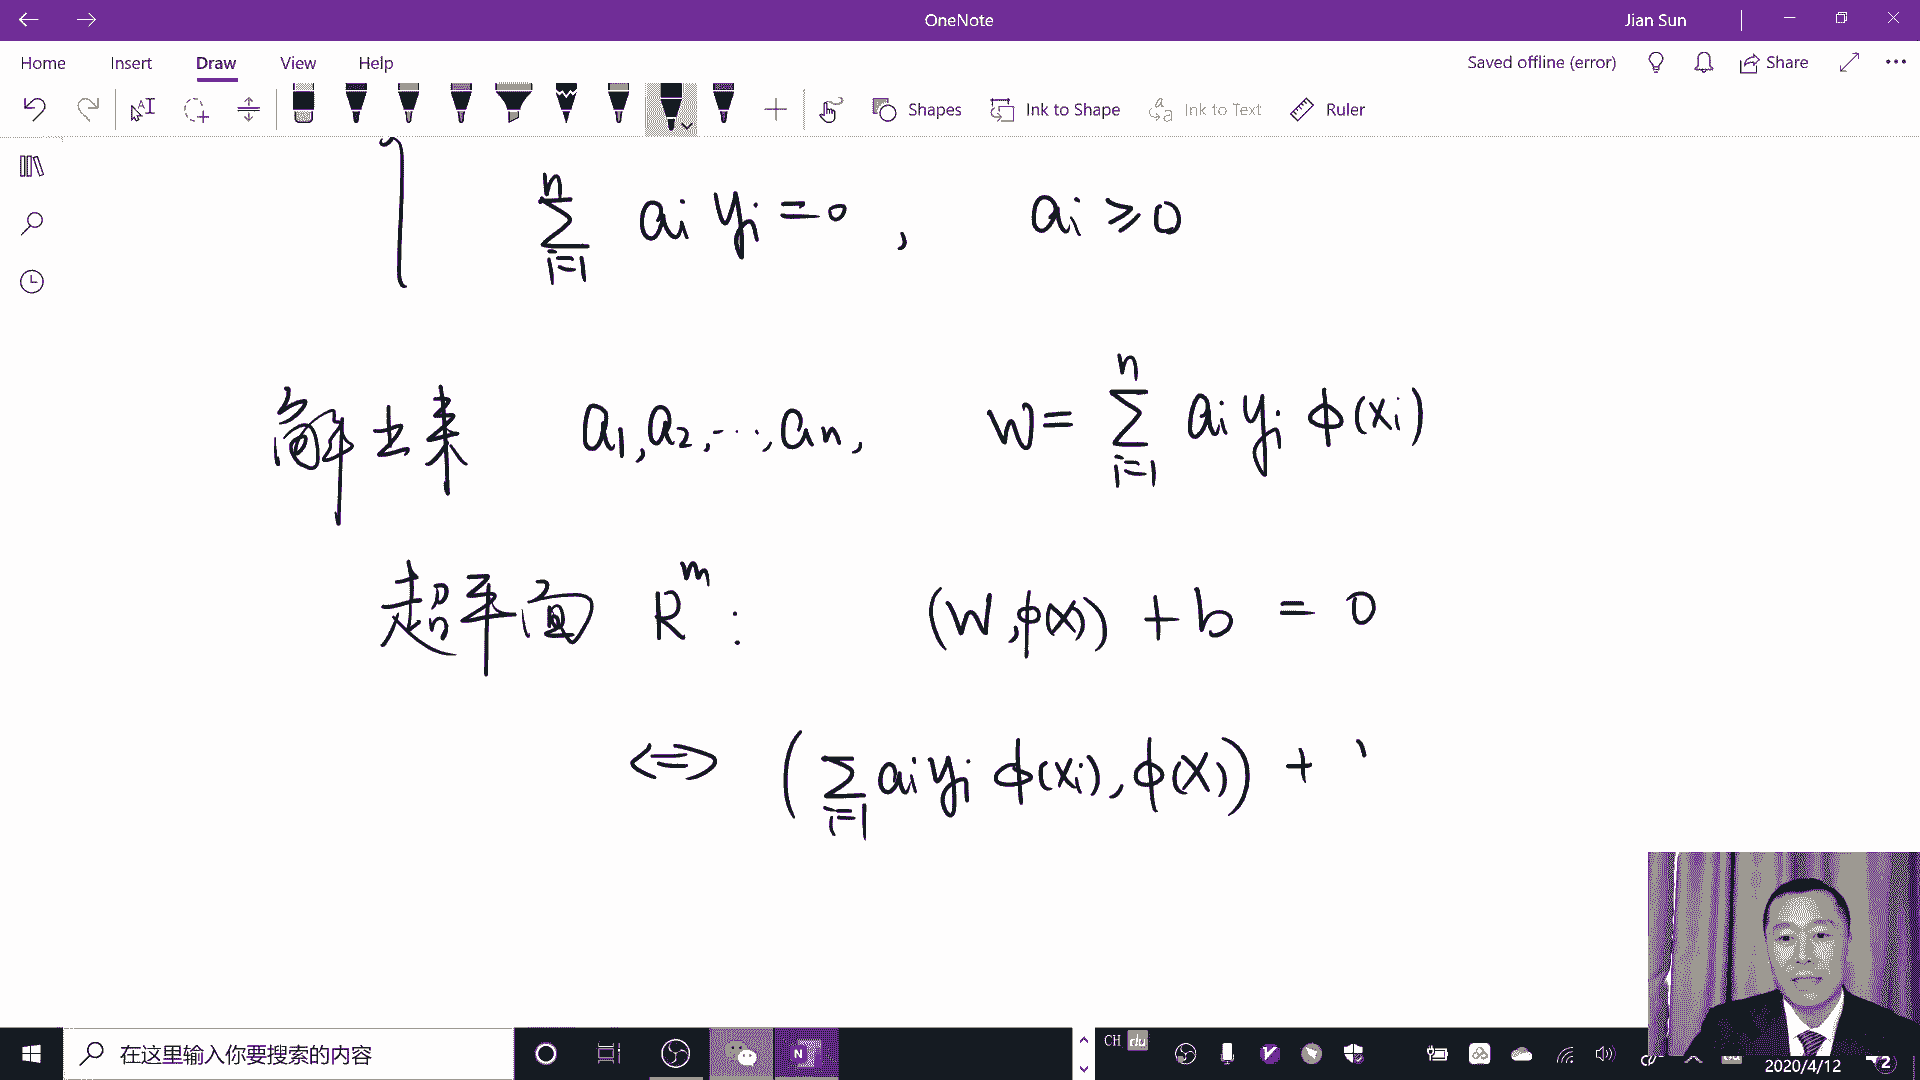 OneNote
Jian Sun
Home Insert Draw View Help
Saved offline (error) Share
Shapes Ink to Shape Ink to Text Ruler
n
∑ aᵢ yᵢ = 0 , aᵢ ≥ 0
i=1
解出来 a₁, a₂, ⋯, aₙ, w = ∑ⁿᵢ₌₁ aᵢ yᵢ ϕ(xᵢ)
超平面 Rᵐ : (w, ϕ(x)) + b = 0
⇔ (∑ᵢ₌₁ aᵢ yᵢ ϕ(xᵢ), ϕ(x)) +
在这里输入你要搜索的内容
CH du
2020/4/12
2